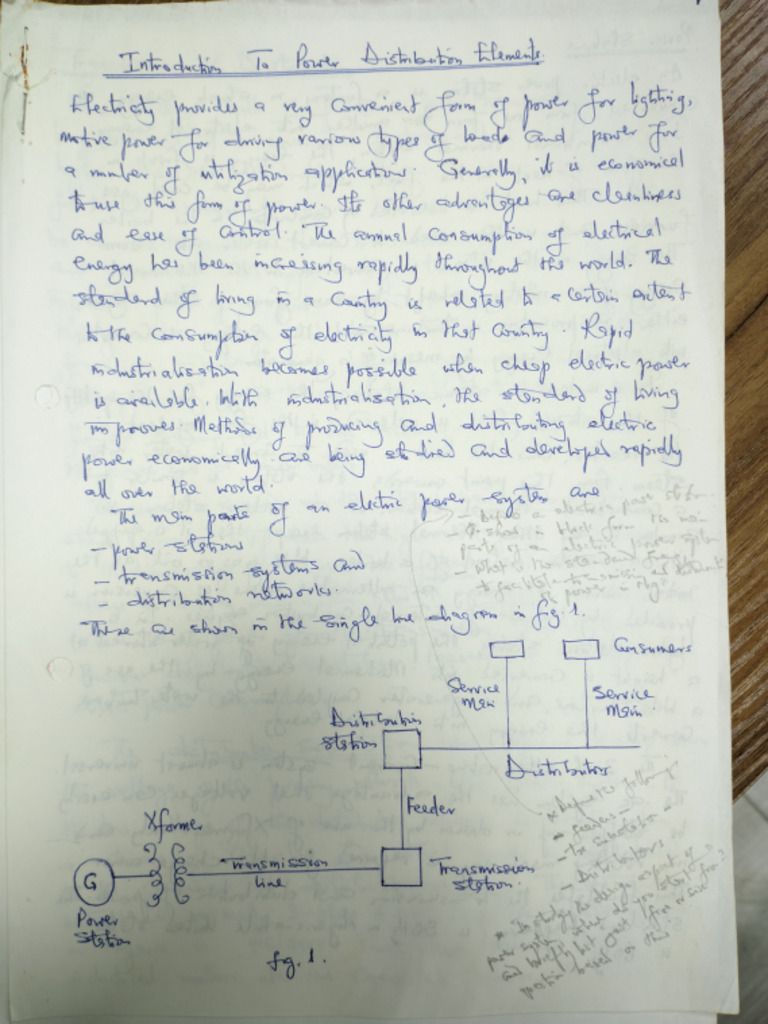 Introduction To Power Distribution Elements
Electricity provides a very convenient form of power for lighting,
motive power for driving various types of loads and power for
a number of utilization applications. Generally, it is economical
to use this form of power. Its other advantages are cleanliness
and ease of control. The annual consumption of electrical
energy has been increasing rapidly throughout the world. The
standard of living in a country is related to a certain extent
to the consumption of electricity in that country. Rapid
industrialisation becomes possible when cheap electric power
is available. With industrialisation, the standard of living
improves. Methods of producing and distributing electric
power economically are being studied and developed rapidly
all over the world.
The main parts of an electric power system are
- power stations
- transmission systems and
- distribution networks.
These are shown in the single line diagram in fig. 1.
- Define a electric power system
- show in block form the main
parts of a electric power system
- What is the standard
to facilitate transmission
of power in
Consumers
Service
Main
Service
Main
Distribution
Station
Distributors
Feeder
Xformer
Transmission
line
Transmission
station.
G
Power
Station
fig. 1.
* Define the following
- feeders
- Distributors